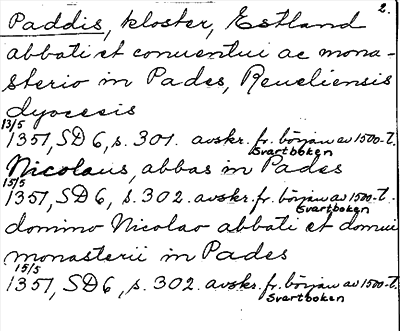 2.
Paddis, kloster, Estland
abbati et conuentui ac mona-
sterio in Pades, Reueliensis
dyocesis
13/5
1351, SD 6, s. 301. avskr. fr. början av 1500-t.
Svartboken
Nicolaus, abbas in Pades
15/5
1351, SD 6, s. 302. avskr. fr. början av 1500-t.
Svartboken
domino Nicolao abbati et domui
monasterii in Pades
15/5
1351, SD 6, s. 302. avskr. fr. början av 1500-t.
Svartboken